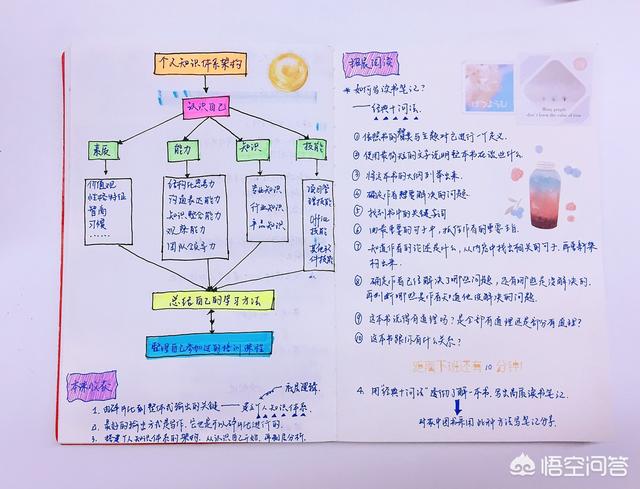 个人知识体系架构
认识自己
素质
能力
知识
技能
价值观
性格特征
智商
习惯
……
结构化思考力
沟通表达能力
知识整合能力
观察能力
团队领导力
专业知识
行业知识
产品知识
项目管
理技能
Office
技能
其他软
件技能
总结自己的学习方法
整理自己参加过的培训课程
本课收获
底层逻辑
1. 由碎片化到整体式输出的关键——建立个人知识体系
2. 最好的输出方式是写作,它也是可以碎片化进行的.
3. 搭建个人知识体系的架构,从认识自己开始,再制度分析.
拓展阅读
如何写读书笔记?
——经典十问法.
① 依照书的 与主题对它进行一个定义.
② 使用最简短的文字说明整本书在谈些什么.
③ 将这本书的大纲列举出来.
④ 确定作者想要解决的问题.
⑤ 找到书中的关键字句
⑥ 由最重要的句子中,抓住作者的重要主旨.
⑦ 知道作者的论述是什么,从内容中找出相关的句子,再重新架
构出来.
⑧ 确定作者已经解决了哪些问题,还有哪些是没解决的.
再判断哪些是作者知道他没解决的问题.
⑨ 这本书说得有道理吗?是全部有道理还是部分有道理?
⑩ 这本书跟你有什么关系?
距离下班还有10分钟!
4. 用"经典十问法"透彻了解一本书,写出高质读书笔记.
对本中国书采用此种方法写笔记分享.
悟空问答